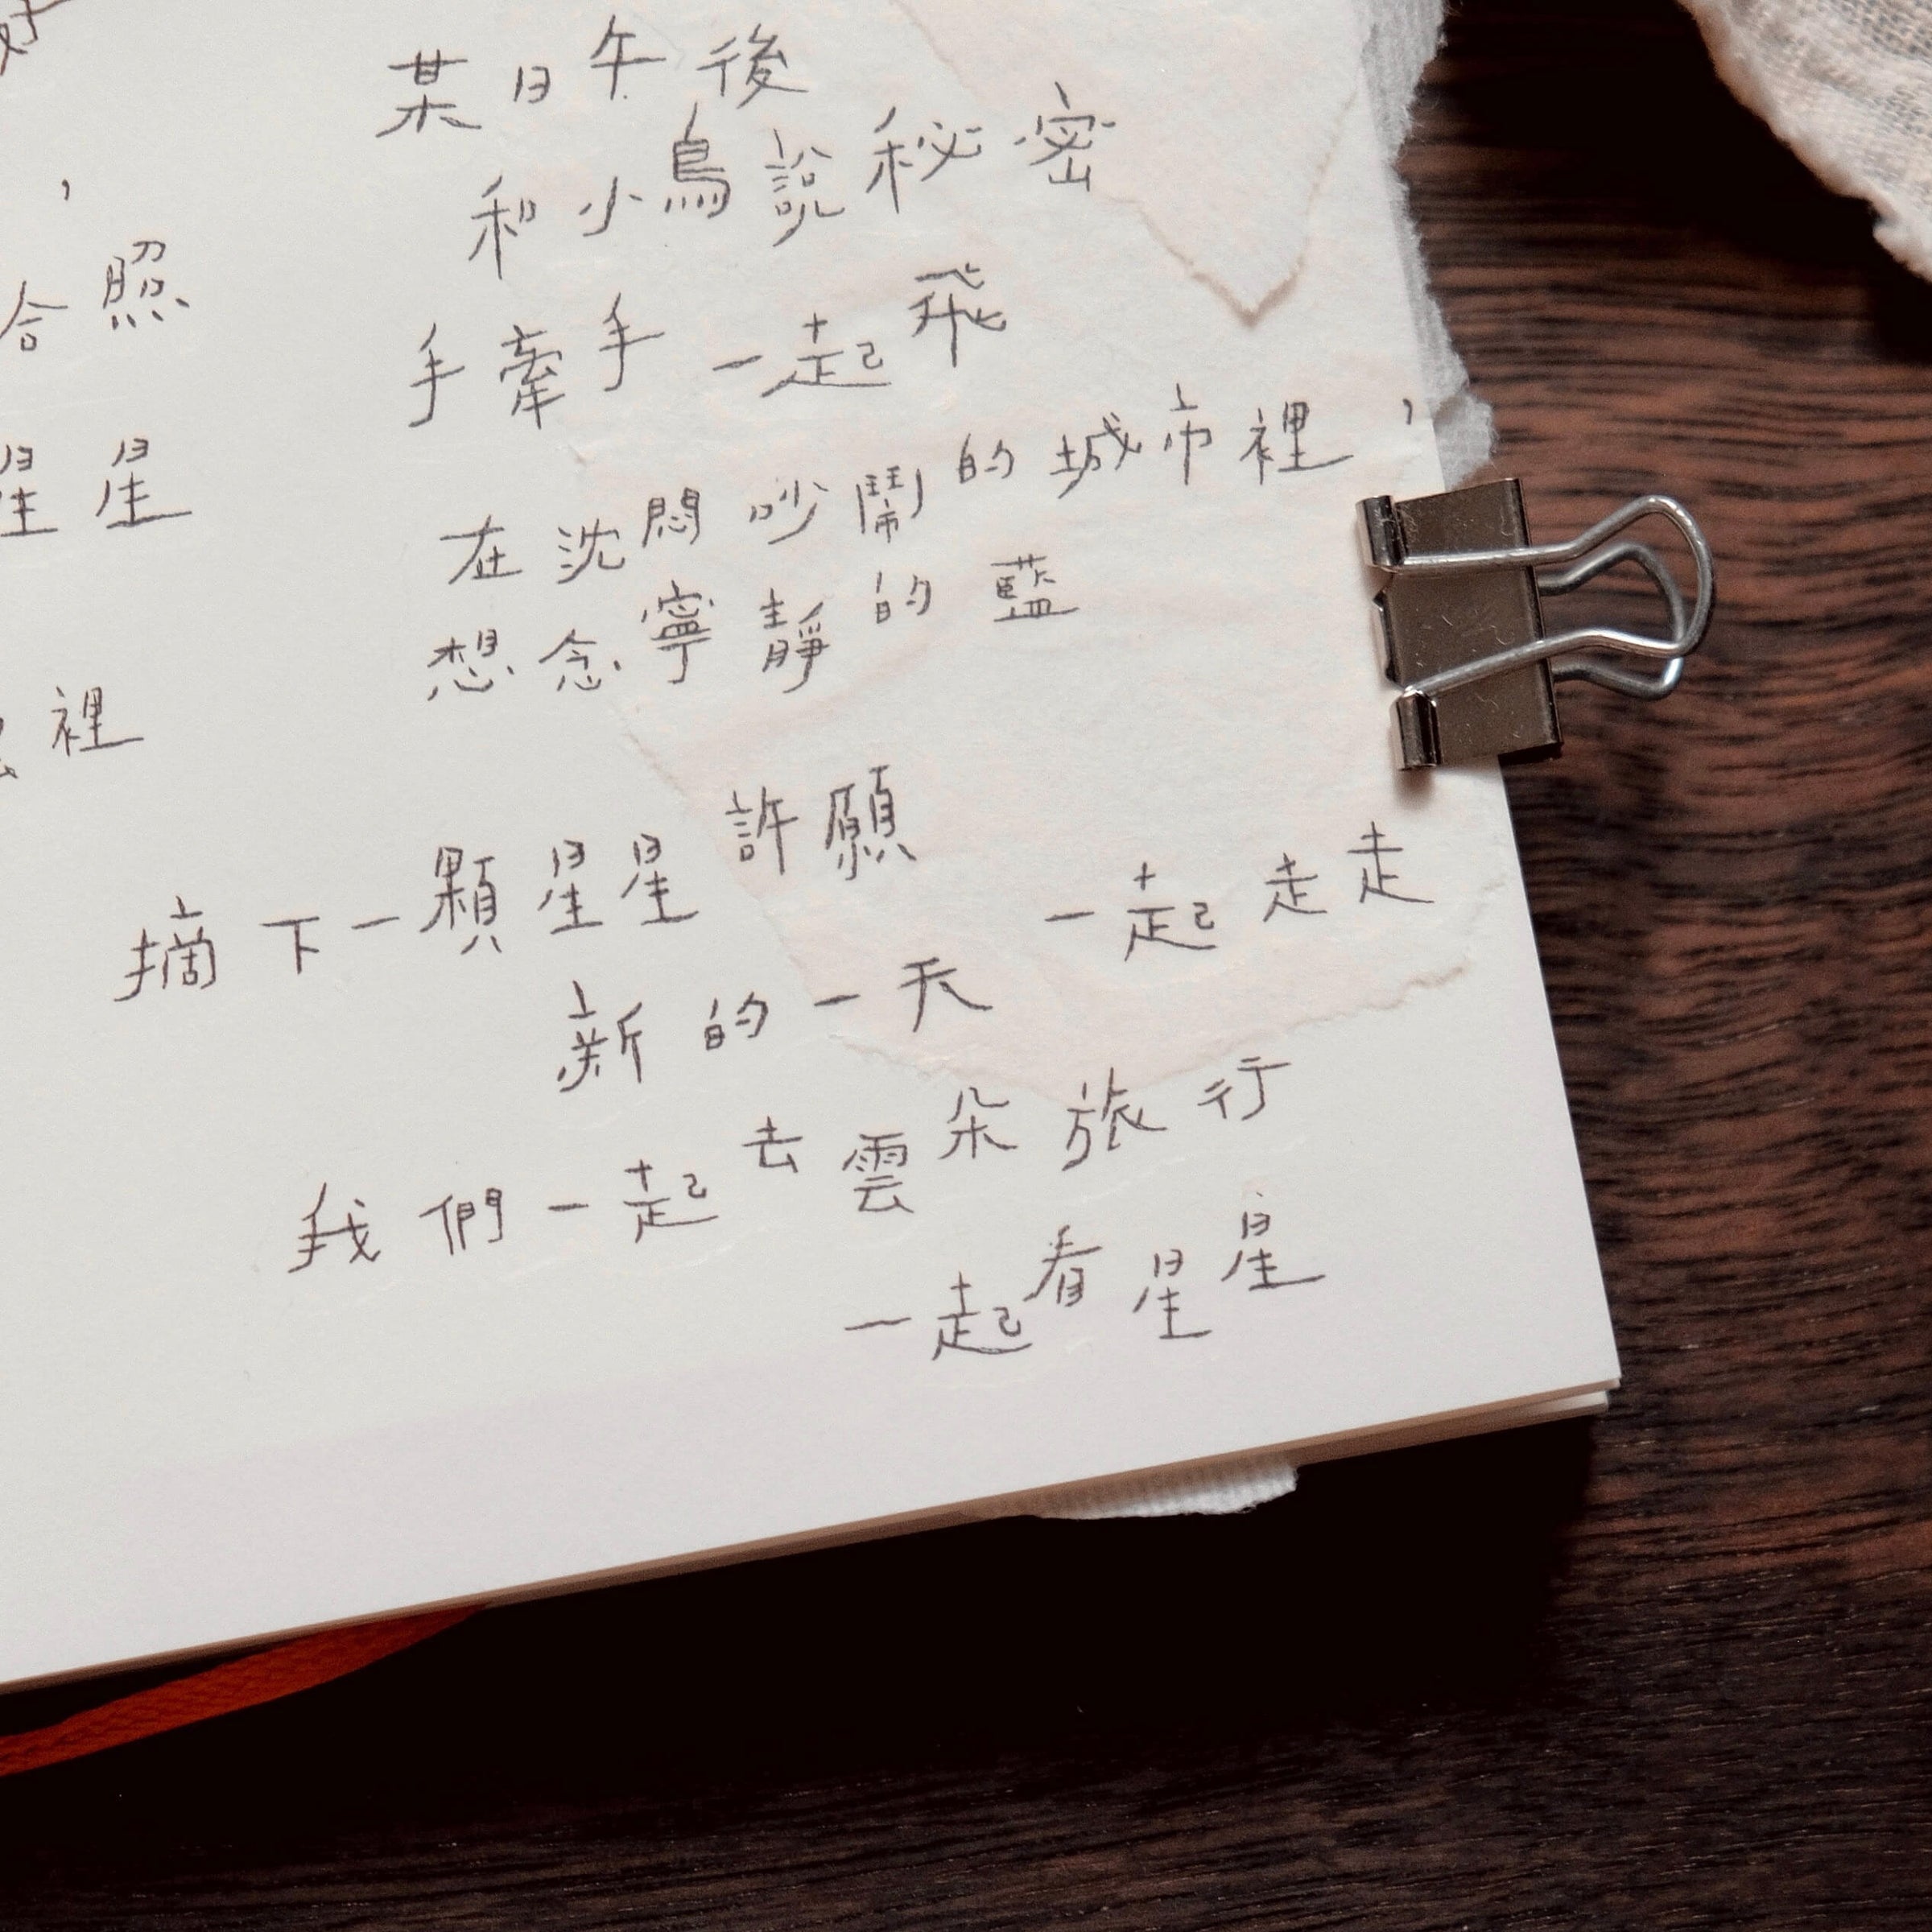 某日午後
和小鳥說秘密
，
合照
手牽手一起飛
星星
在沈悶吵鬧的城市裡，
想念寧靜的藍
裡
摘下一顆星星許願
一起走走
新的一天
我們一起去雲朵旅行
一起看星星